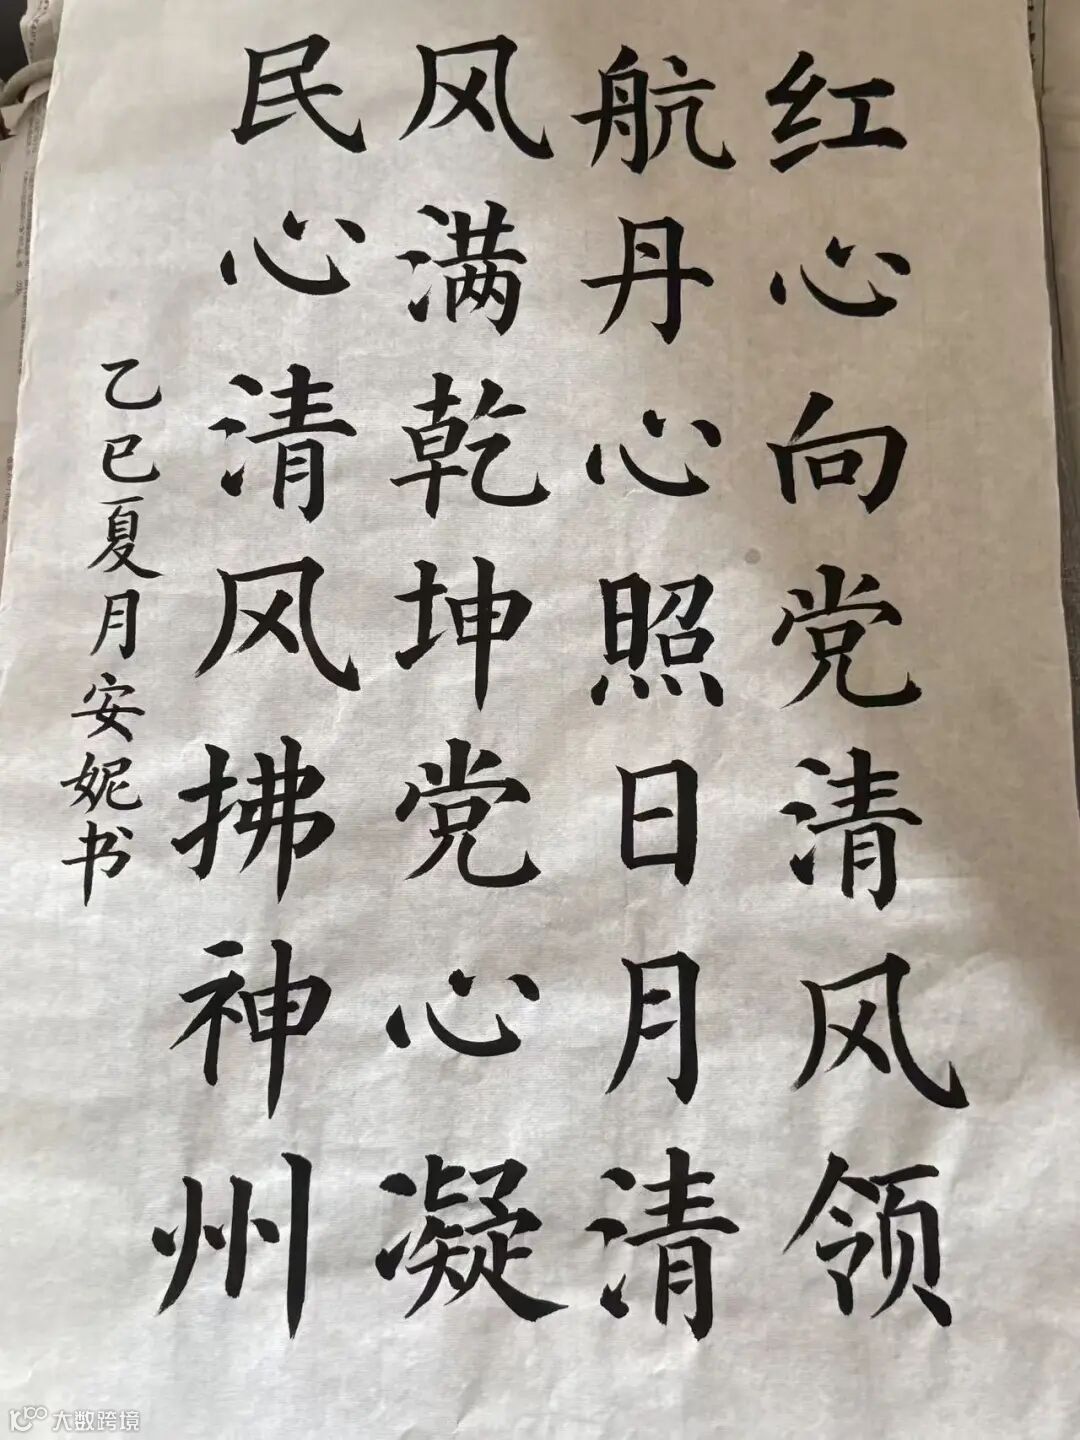 红心向党清风领
航丹心照日月清
风满乾坤党心凝
民心清风拂神州
乙巳夏月安妮书
大数跨境